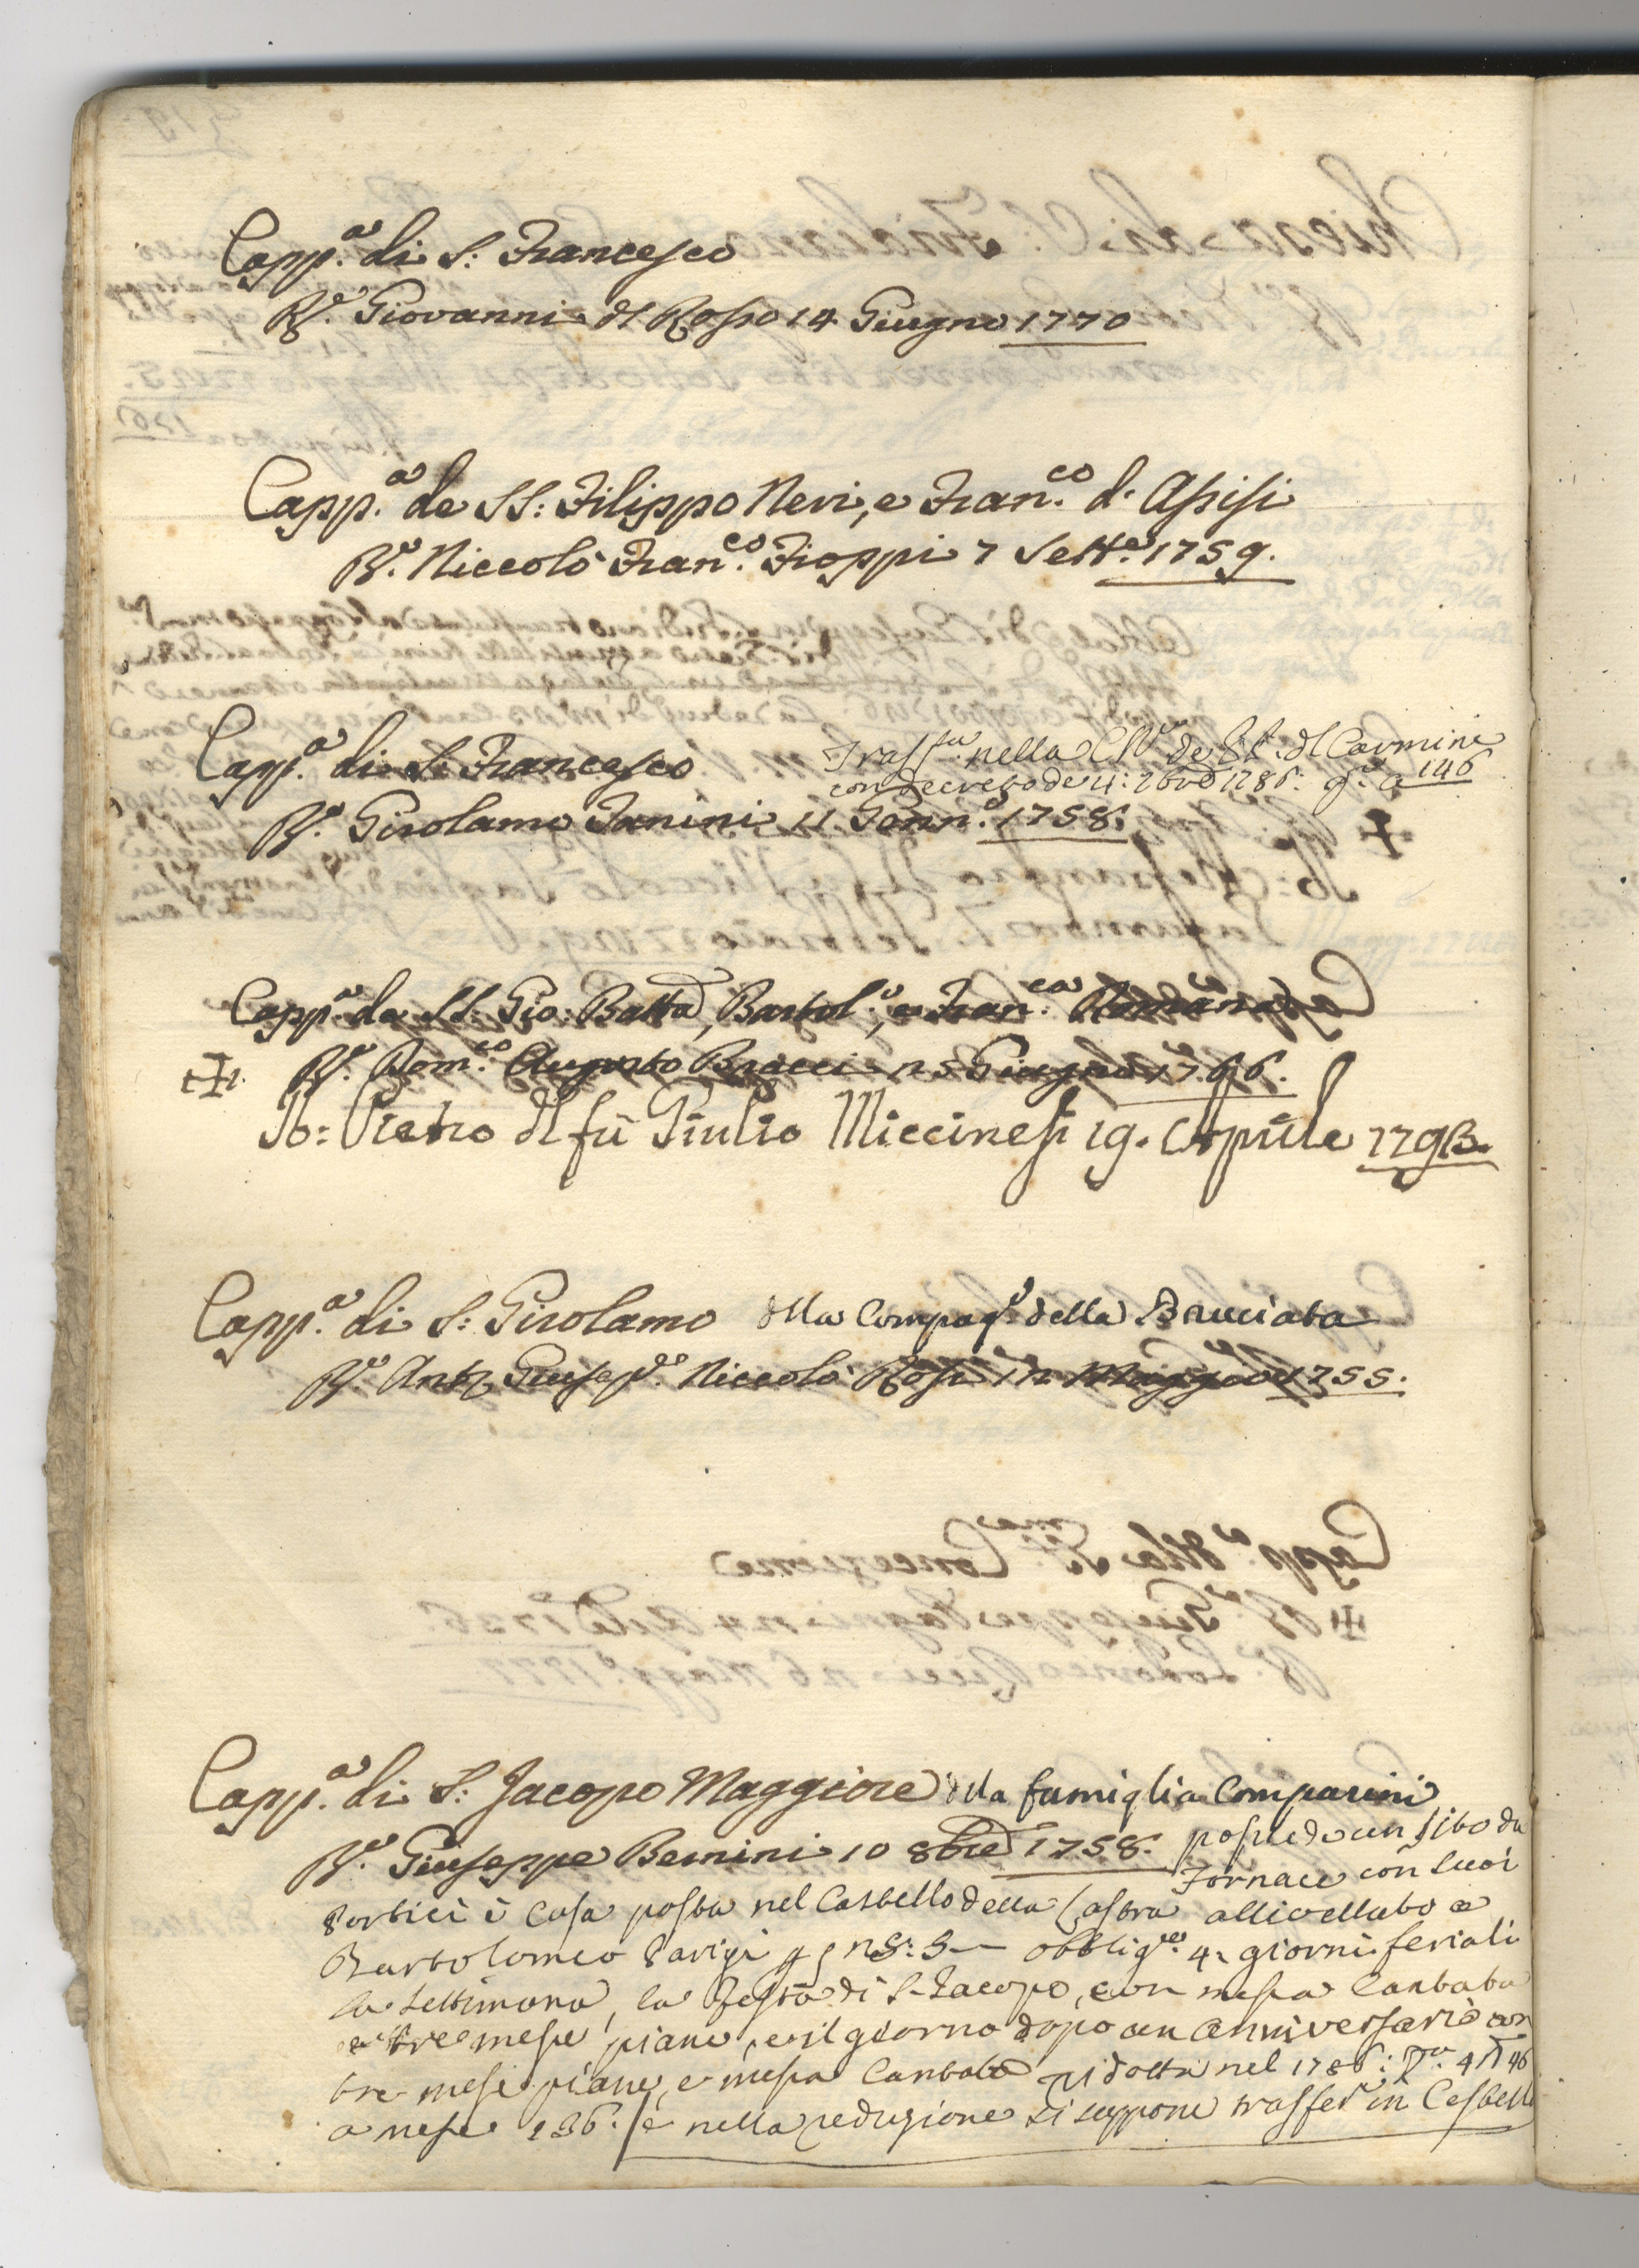 Capp.a di S: Francesco
R.e Giovanni dl Rosso 14 Giugno 1770
Capp.a de SS: Filippo Neri, e Fran.co d'Assisi
R.e Niccolò Fran.co Fioppi 7 Sett.e 1759.
Capp.a di S. Francesco
nella de dl Carmine
con decreto de 1786: a 146
R.e Girolamo 11 Genn.o 1758.
Capp.a de SS: Gio: Batta, Bartol.o, e Fran.ca Romana
R.e Dom.co Augusto Bracci 25 Giugno 1766.
Pietro dl fù Giulio Miccinesi 19. Aprile 1793.
Capp.a di S: Girolamo dlla Compag.a della Bruciata
R.e Ant.o Giusep.e Niccolò Rossi 12 Maggio 1755.
Capp.a di S: Jacopo Maggiore dlla famiglia Comparini
R.e Giuseppe Bernini 10 8bre 1758. possiede un sito da
Fornace con suoi
Portici è Casa posta nel Castello della Lastra allivellato a
Bartolomeo Parigi obblig.e 4 giorni feriali
la settimana, la Festa di S. Jacopo, con messa Cantata
e tre messe piane, e il giorno dopo un Anniversario con
tre messe piane, e messa Cantata ridotti nel 1786:
a messe 136. è nella reduzione si suppone trasfer.a in